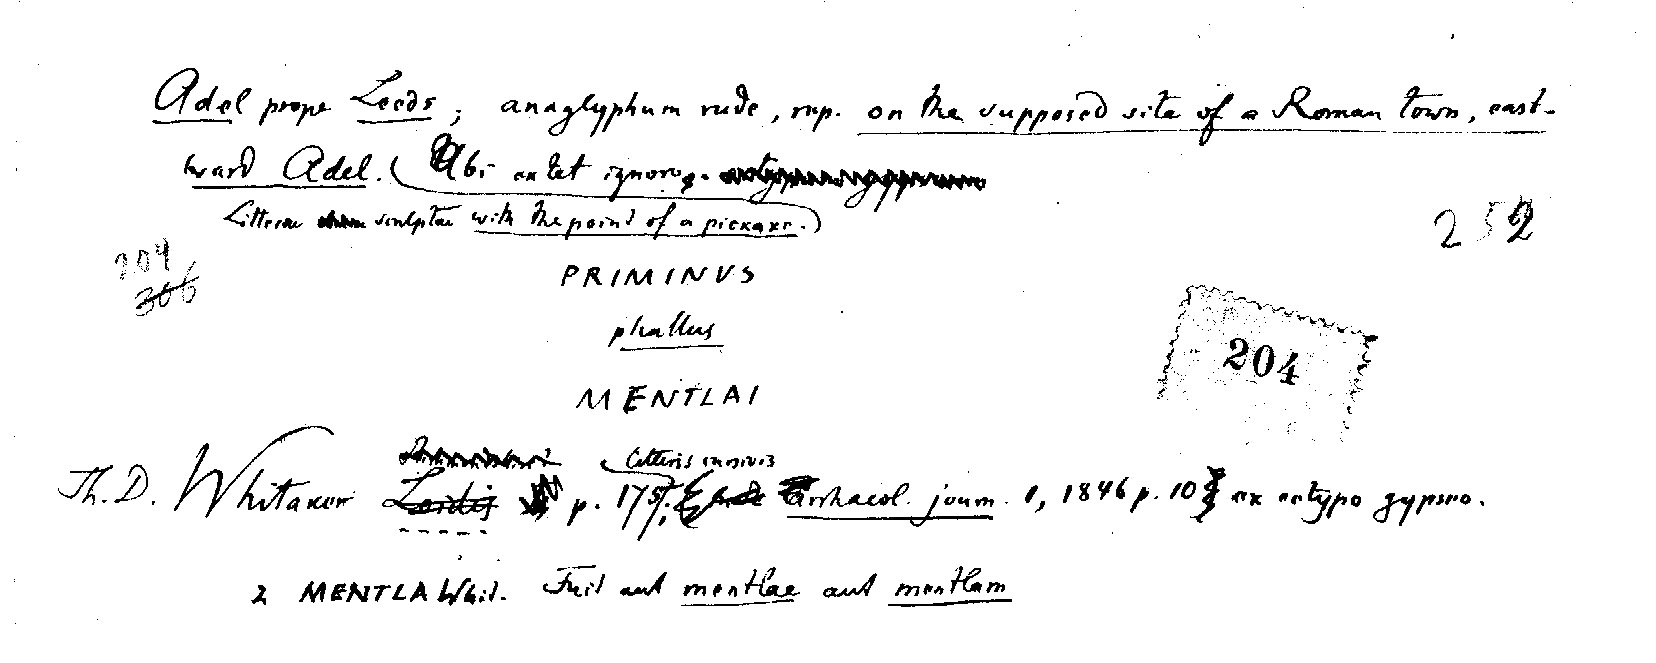 Adel prope Leeds; anaglyphum rude, rep. on the supposed site of a Roman town, east-
ward Adel. (Ubi extet ignoro.
Litterae sculptae with the point of a pickaxe.)
252
204
306
PRIMINVS
phallus
204
MENTLAI
litteris incisis
Th. D. Whitaker Loidis p. 175. Archaeol. journ. 1, 1846 p. 10 ex ectypo gypseo.
2 MENTLA Whit. Fuit aut mentlae aut mentlam